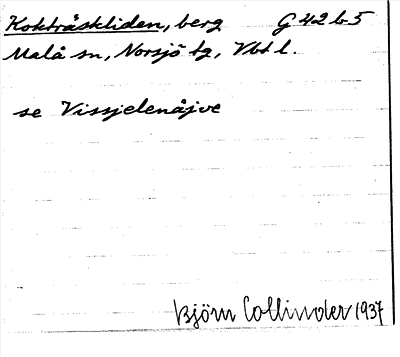 Kokträskliden, berg G 42 b 5
Malå sn, Norsjö tg, Vbt l.
se Vissjelenåjve
Björn Collinder 1937